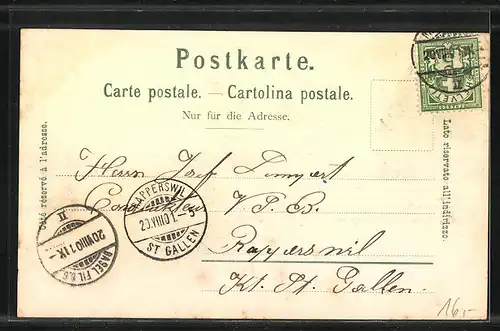 Postkarte.
Carte postale. — Cartolina postale.
Nur für die Adresse.
Côté réservé à l'adresse.
Lato riservato all'indirizzo.
Herrn Josef
V. S. B.
Rapperswil
Kt. St. Gallen.
RAPPERSWIL
20.VIII.01.-5
ST GALLEN
BASEL
20.VIII.01.IX-
II
16,-